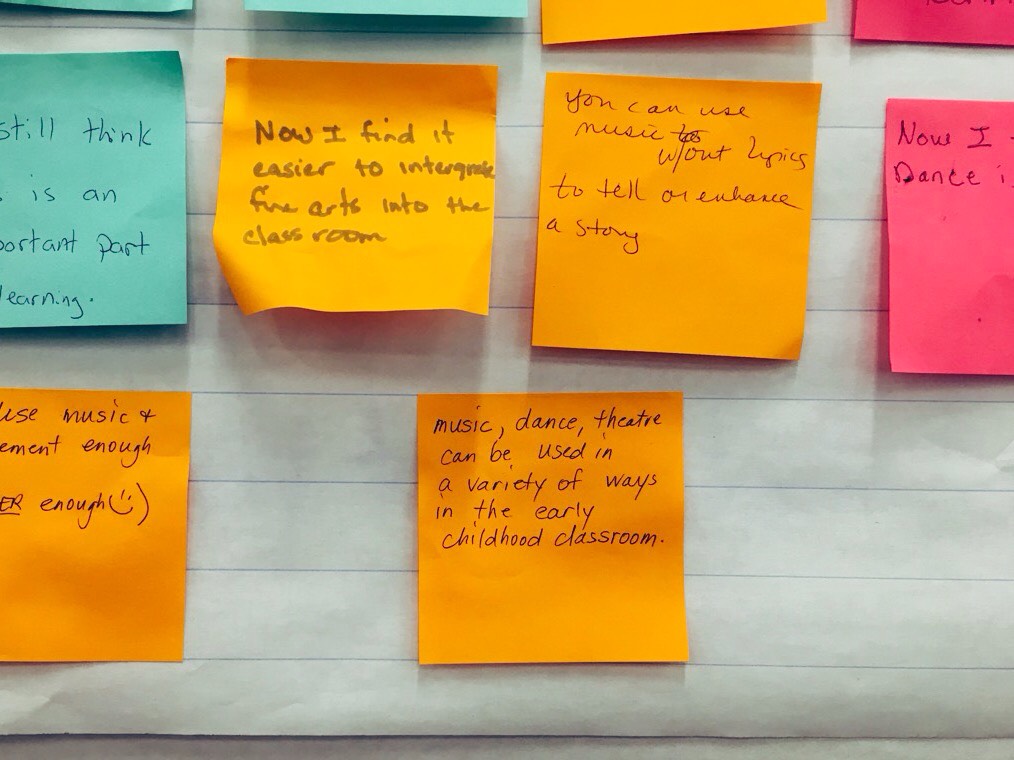 still think
is an
portant part
learning.
Now I find it
easier to intergrate
fine arts into the
classroom
you can use
music to
w/out lyrics
to tell or enhance
a story
Now I
Dance i
use music &
ement enough
ER enough (☺)
music, dance, theatre
can be used in
a variety of ways
in the early
childhood classroom.